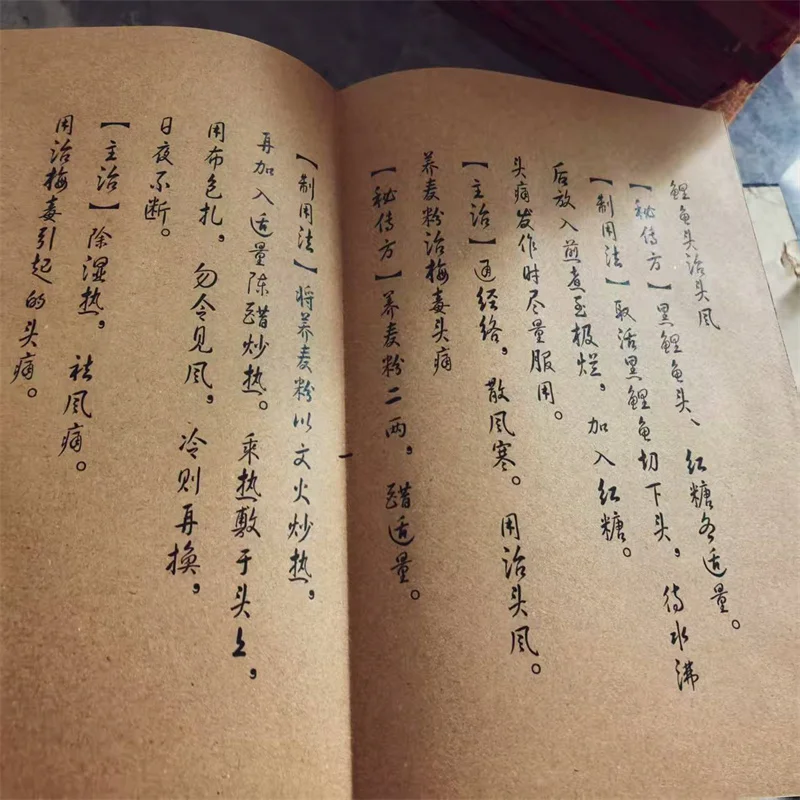 鲤鱼头治头风
【秘传方】黑鲤鱼头、红糖各适量。
【制用法】取活黑鲤鱼切下头，待水沸
后放入煎煮至极烂，加入红糖。
头痛发作时尽量服用。
【主治】通经络，散风寒。用治头风。
荞麦粉治梅毒头痛
【秘传方】荞麦粉二两，醋适量。
【制用法】将荞麦粉以文火炒热，
再加入适量陈醋炒热。乘热敷于头上，
用布包扎，勿令见风，冷则再换，
日夜不断。
【主治】除湿热，祛风痛。
用治梅毒引起的头痛。